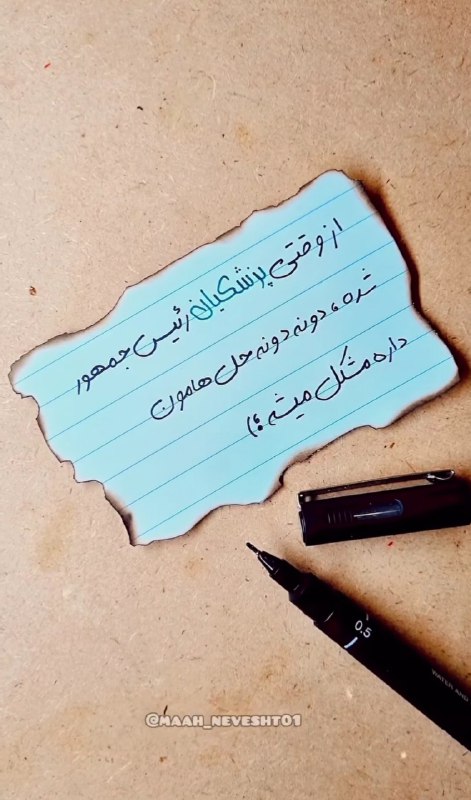 از وقتی پزشکیان رئیس جمهور
شده، دونه دونه حل هامون
داره مشکل میشه؛)
0.5
WATER AND
@MAAH_NEVESHT01